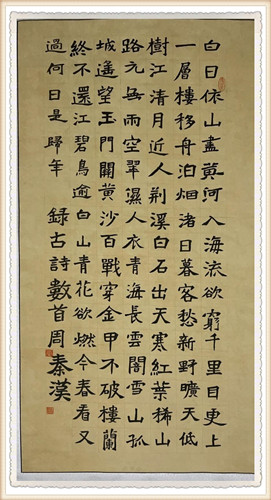 白日依山盡黄河入海流欲窮千里目更上
一層樓移舟泊烟渚日暮客愁新野曠天低
樹江清月近人荆溪白石出天寒紅葉稀山
路元無雨空翠濕人衣青海長雲闇雪山孤
城遥望玉門關黄沙百戰穿金甲不破樓蘭
終不還江碧鳥逾白山青花欲燃今春看又
過何日是歸年 録古詩數首周秦漢